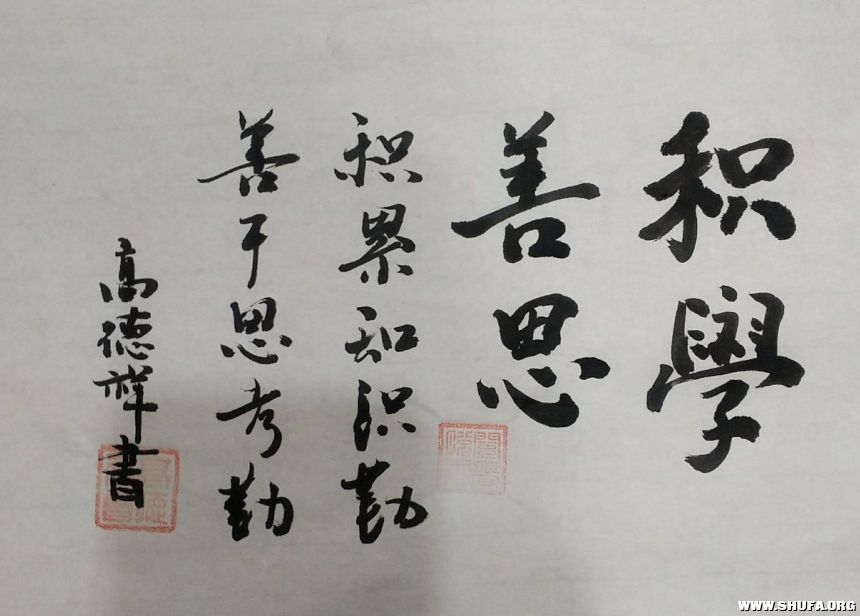 积學
善思
积累知识勤
善于思考勤
高德祥書
WWW.SHUFA.ORG